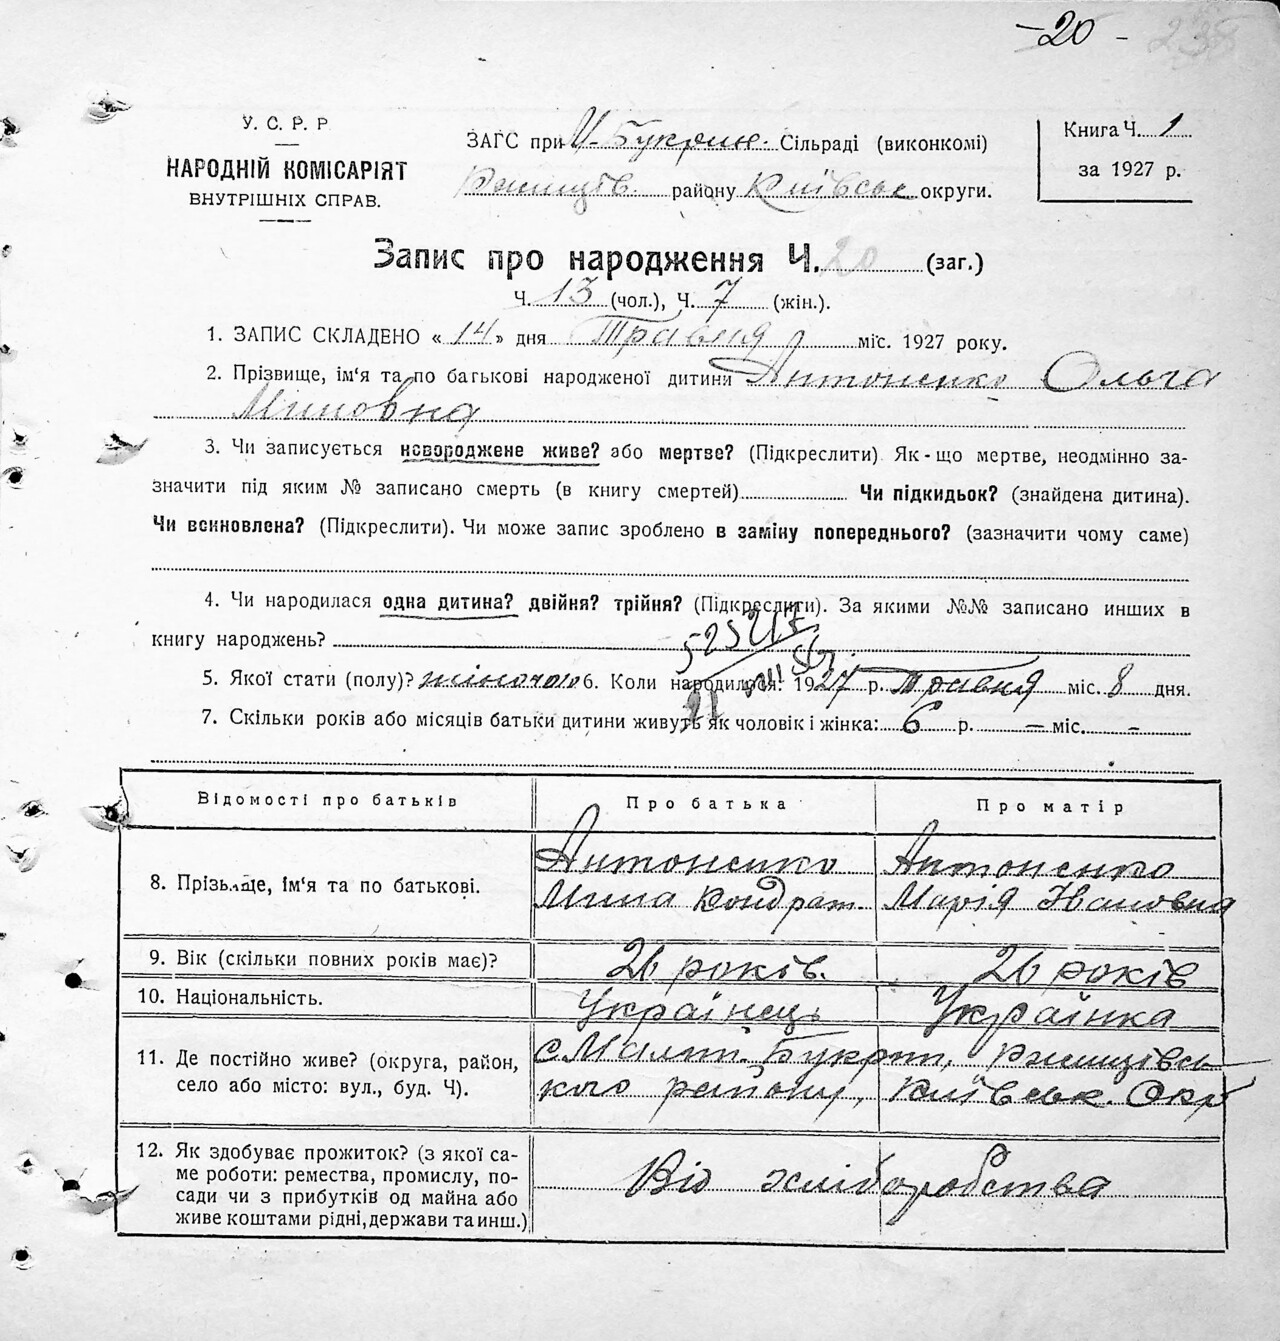 -20-
238
У. С. Р. Р
НАРОДНІЙ КОМІСАРІЯТ
ВНУТРІШНІХ СПРАВ.
ЗАГС при М-Букрин. Сільраді (виконкомі)
Ржищів. району Київськ округи.
Книга Ч. 1
за 1927 р.
Запис про народження Ч. 20 (заг.)
Ч. 13 (чол.), Ч. 7 (жін.).
1. ЗАПИС СКЛАДЕНО « 14 » дня Травня міс. 1927 року.
2. Прізвище, ім'я та по батькові народженої дитини Антоненко Ольга
Миновна
3. Чи записується новороджене живе? або мертве? (Підкреслити) Як-що мертве, неодмінно за-
значити під яким № записано смерть (в книгу смертей) Чи підкидьок? (знайдена дитина).
Чи всиновлена? (Підкреслити). Чи може запис зроблено в заміну попереднього? (зазначити чому саме)
4. Чи народилася одна дитина? двійня? трійня? (Підкреслити). За якими №№ записано инших в
книгу народжень?
525217
21 VIII 56
5. Якої стати (полу)? жіночої 6. Коли народилася: 1927 р. Травня міс. 8 дня.
7. Скільки років або місяців батьки дитини живуть як чоловік і жінка: 6 р. – міс. –
Відомості про батьків Про батька Про матір
8. Прізвище, ім'я та по батькові. Антоненко Мина Кондрат. Антоненко Марія Івановна
9. Вік (скільки повних років має)? 26 років. 26 років
10. Національність. Українець Українка
11. Де постійно живе? (округа, район, с Малий. Букрин, Ржищівсь-
село або місто: вул., буд. Ч). кого району, Київськ. Окр
12. Як здобуває прожиток? (з якої са-
ме роботи: ремества, промислу, по-
сади чи з прибутків од майна або Від хліборобства
живе коштами рідні, держави та инш.)